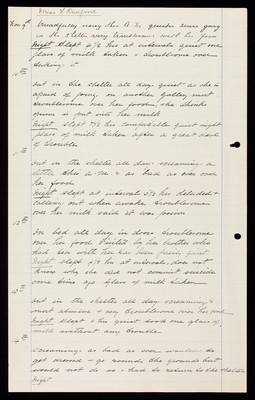 Miss V. 
Nov 9th Dreadfully noisy this A.M. quieter since going
in the shelter very troublesome with her food
Night Slept 4/8 hrs at intervals quiet one
glass of milk taken & troublesome over
taking it
10th out in the shelter all day quiet as she is
afraid of going on another Galley most
troublesome over her food, she thinks
opium is put into the milk
Night slept 7/8 hrs comfortable quiet night
glass of milk taken after a great deal
of trouble
11th out in the shelter all day screaming a
little this a.m. & as bad as ever over
her food
Night slept at intervals 5/8 hrs deluded &
calling out when awake troublesome
over her milk said it was poison
12th In bed all day in dorm troublesome
over her food visited by her brother who
had tea with her has been fairly quiet
Night slept 4/8 hrs at intervals, does not
know why she did not commit suicide
some time ago glass of milk taken
13th out in the shelter all day screaming &
most abusive & very troublesome over her food
Night slept 6 hrs quiet took one glass of
milk without any trouble
14th Screaming as bad as ever wanted to
get dressed & go round the grounds but
would not do so & had to return to the shelter
Night